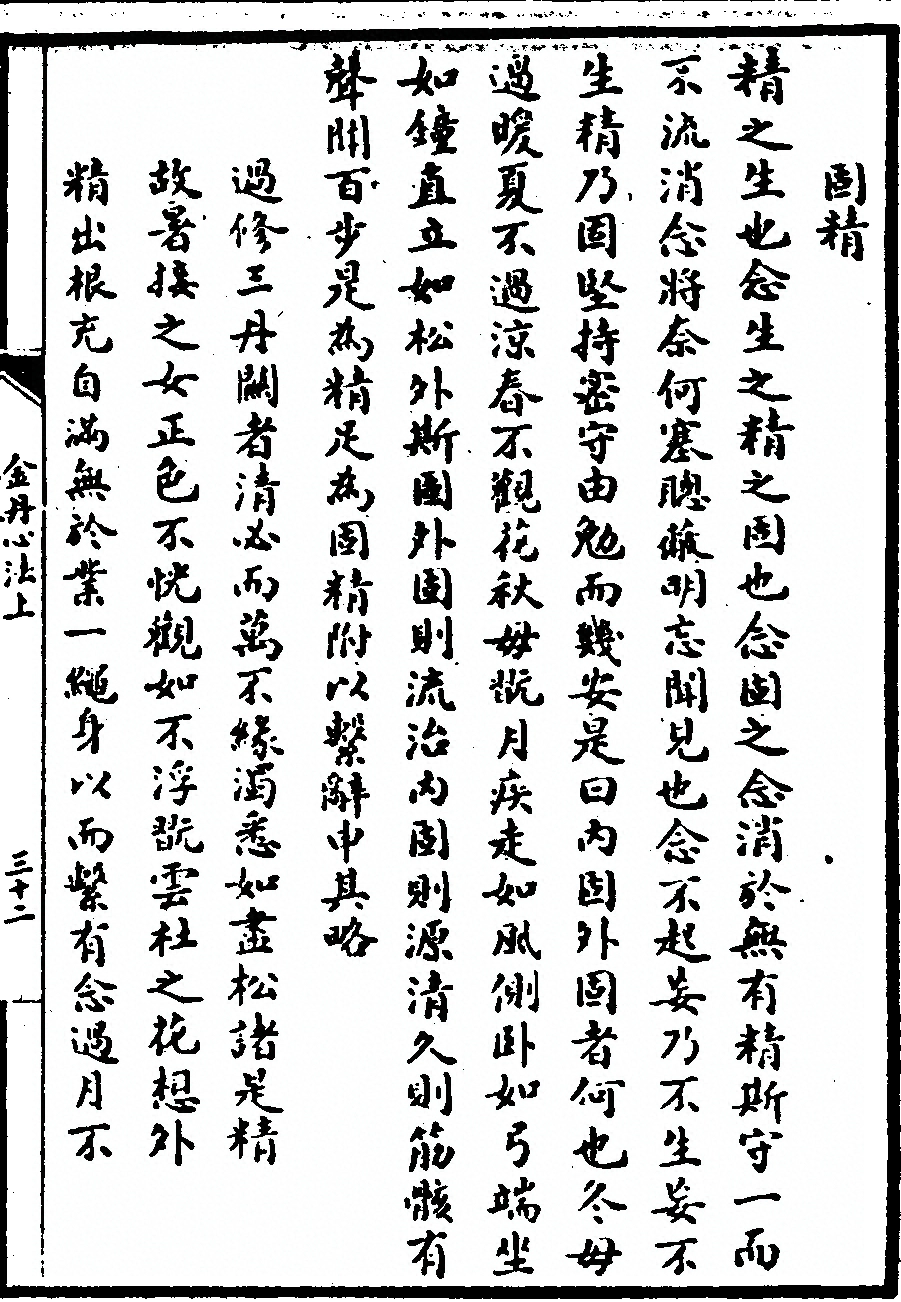 固精
精之生也念生之精之固也念固之念消於無有精斯守一而
不流消念將奈何塞聰蔽明忘聞見也念不起妄乃不生妄不
生精乃固堅持密守由勉而幾安是曰內固外固者何也冬毋
過暖夏不過涼春不觀花秋毋翫月疾走如風側卧如弓端坐
如鐘直立如松外斯固外固則流治內固則源清久則筋骸有
聲開百步是為精足為固精附以繫辭申其略
過修三丹關者清必而萬不緣濁悉如盡松諸是精
故暑接之女正色不恍觀如不浮翫雲杜之花想外
精出根充自滿無於業一繩身以而繫有念過月不
金丹心法上
三十二